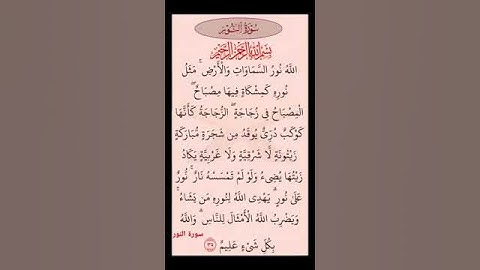 سُورَةُ النُّورِ
بِسْمِ اللَّهِ الرَّحْمَٰنِ الرَّحِيمِ
اللَّهُ نُورُ السَّمَاوَاتِ وَالْأَرْضِ ۚ مَثَلُ
نُورِهِ كَمِشْكَاةٍ فِيهَا مِصْبَاحٌ ۖ
الْمِصْبَاحُ فِي زُجَاجَةٍ ۖ الزُّجَاجَةُ كَأَنَّهَا
كَوْكَبٌ دُرِّيٌّ يُوقَدُ مِن شَجَرَةٍ مُّبَارَكَةٍ
زَيْتُونَةٍ لَّا شَرْقِيَّةٍ وَلَا غَرْبِيَّةٍ يَكَادُ
زَيْتُهَا يُضِيءُ وَلَوْ لَمْ تَمْسَسْهُ نَارٌ ۚ نُّورٌ
عَلَىٰ نُورٍ ۗ يَهْدِي اللَّهُ لِنُورِهِ مَن يَشَاءُ ۚ
وَيَضْرِبُ اللَّهُ الْأَمْثَالَ لِلنَّاسِ ۗ وَاللَّهُ
سورة النور
بِكُلِّ شَيْءٍ عَلِيمٌ ﴿٣٥﴾